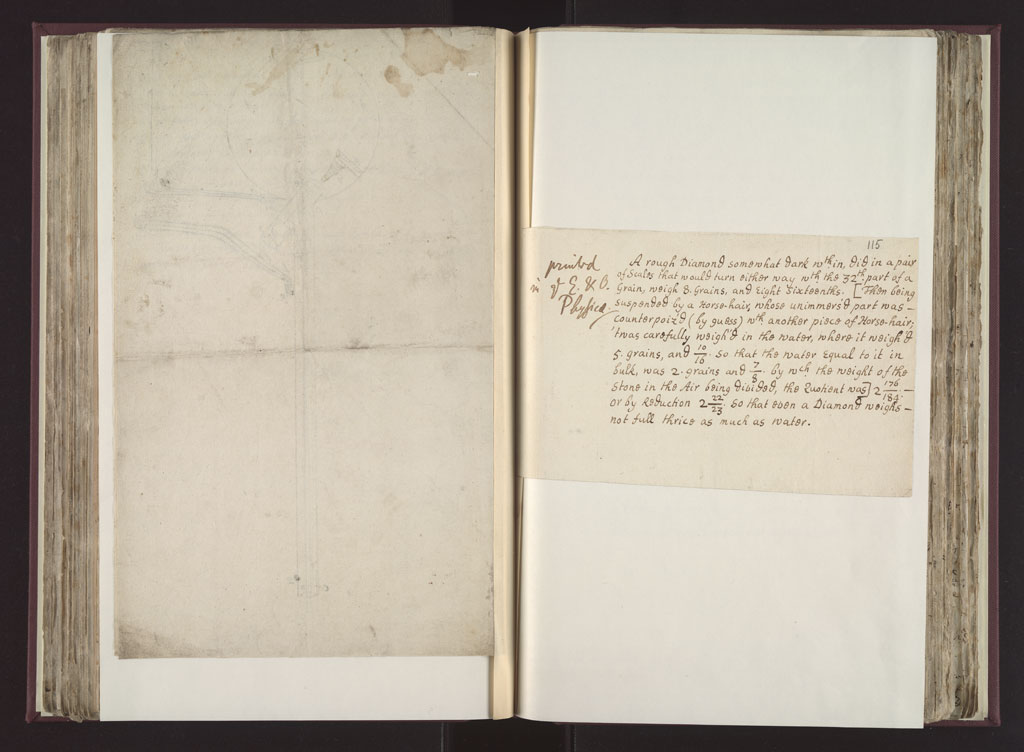 115
printed
in ye E. & O.
Physica
A rough Diamond somewhat dark wthin, did in a pair
of Scales that would turn either way wth the 32th part of a
Grain, weigh 8. Grains, and Eight Sixteenths. [Then being
suspended by a Horse-hair, whose unimmers'd part was –
counterpoiz'd (by guess) wth another piece of Horse-hair;
'twas carefully weigh'd in the water, where it weigh'd
5. grains, and 10/16. So that the water Equal to it in
bulk, was 2. grains and 7/8. by wch the weight of the
Stone in the Air being divided, the Quotient was] 2 176/184. –
or by Reduction 2 22/23. So that even a Diamond weighs –
not full thrice as much as water.